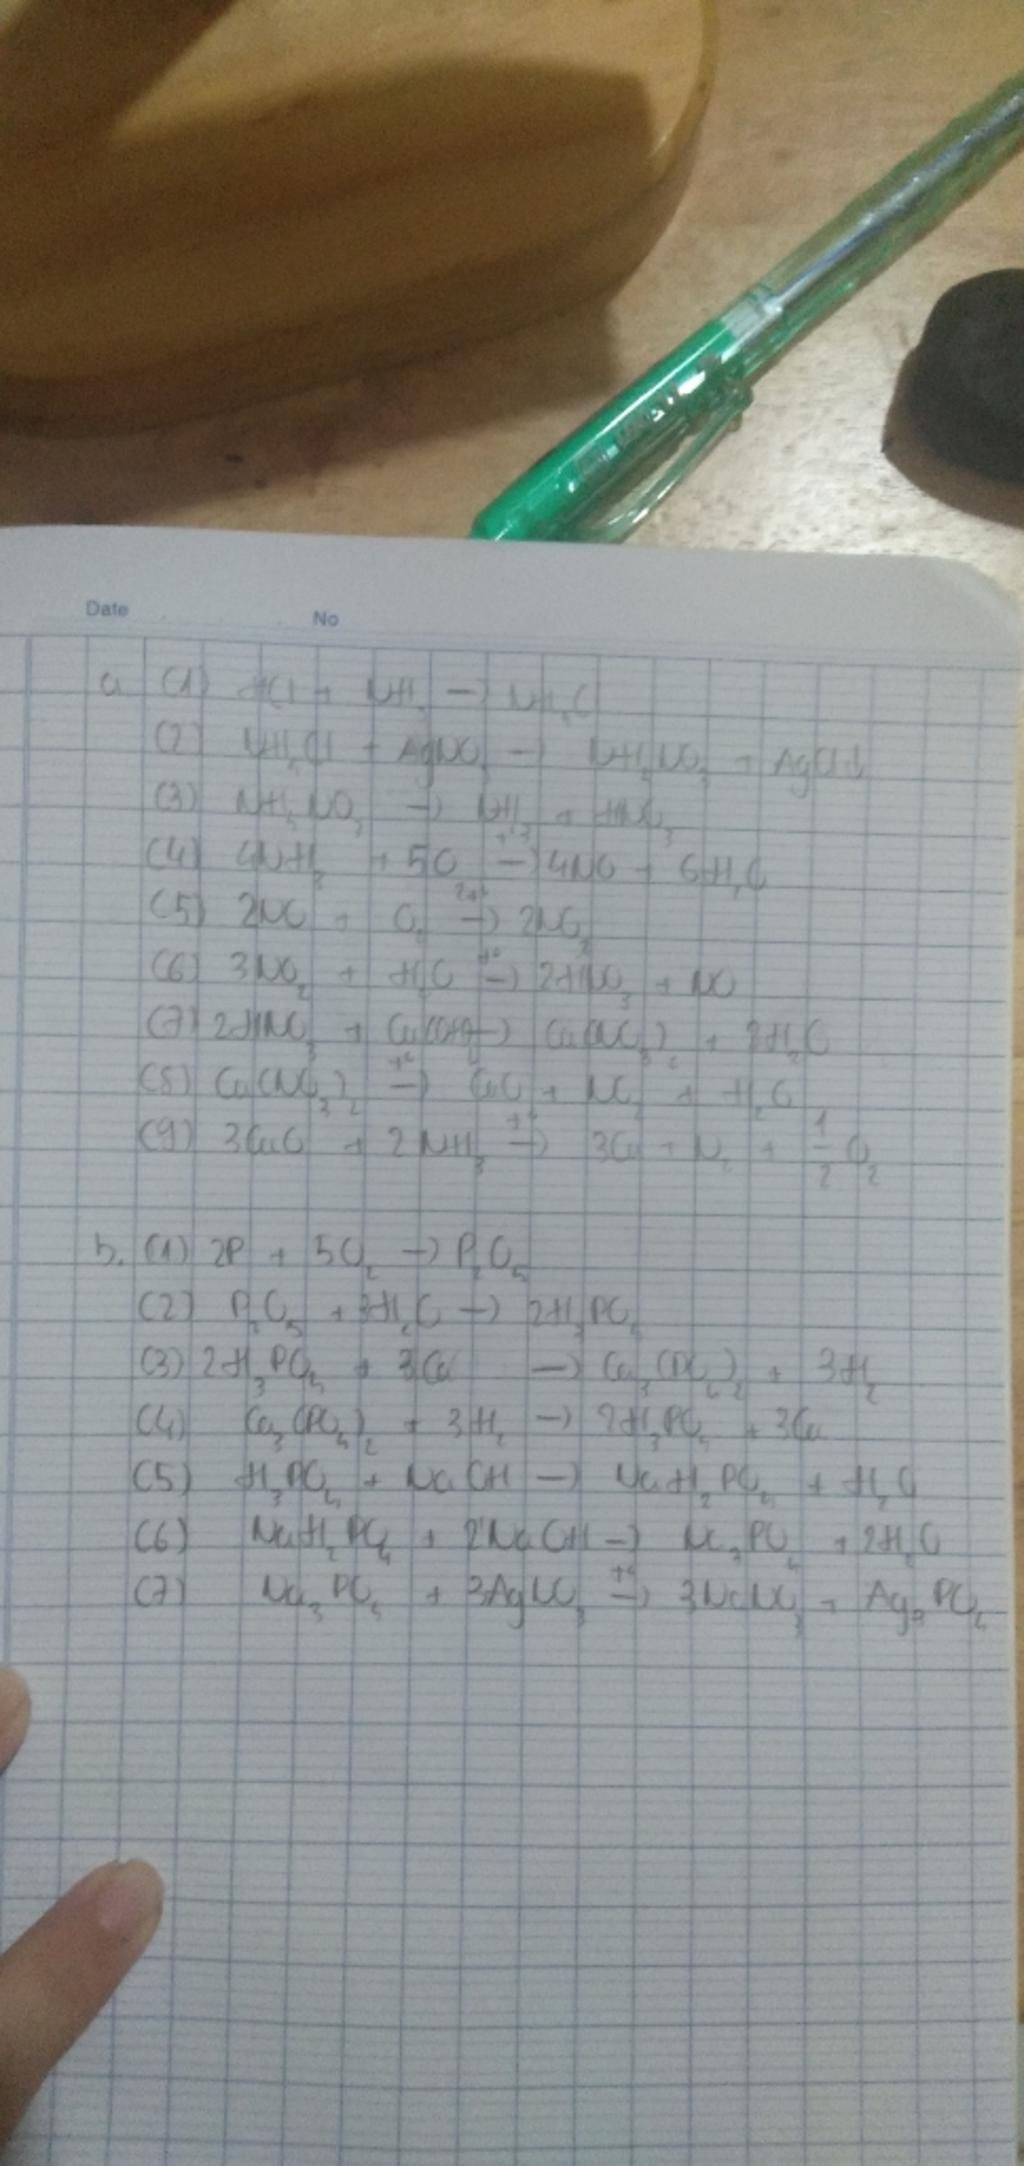 Date No
a (1) HCl + NH3 → NH4Cl
(2) NH4Cl + AgNO3 → NH4NO3 + AgCl↓
(3) NH4NO3 → NH3 + HNO3
(4) 4NH3 + 5O2 → 4NO + 6H2O
(5) 2NO + O2 → 2NO2
(6) 3NO2 + H2O → 2HNO3 + NO
(7) 2HNO3 + Cu(OH)2 → Cu(NO3)2 + 2H2O
(8) Cu(NO3)2 → CuO + NO2 + H2O
(9) 3CuO + 2NH3 → 3Cu + N2 + 1/2 O2
b. (1) 2P + 5O2 → P2O5
(2) P2O5 + 3H2O → 2H3PO4
(3) 2H3PO4 + 3Ca → Ca3(PO4)2 + 3H2
(4) Ca3(PO4)2 + 3H2 → 2H3PO4 + 3Ca
(5) H3PO4 + NaOH → NaH2PO4 + H2O
(6) NaH2PO4 + 2NaOH → Na3PO4 + 2H2O
(7) Na3PO4 + 3AgNO3 → 3NaNO3 + Ag3PO4